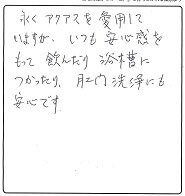 永くアクアスを愛用して
いますが、いつも安心感を
もって飲んだり浴槽に
つかったり、肛内洗浄にも
安心です。